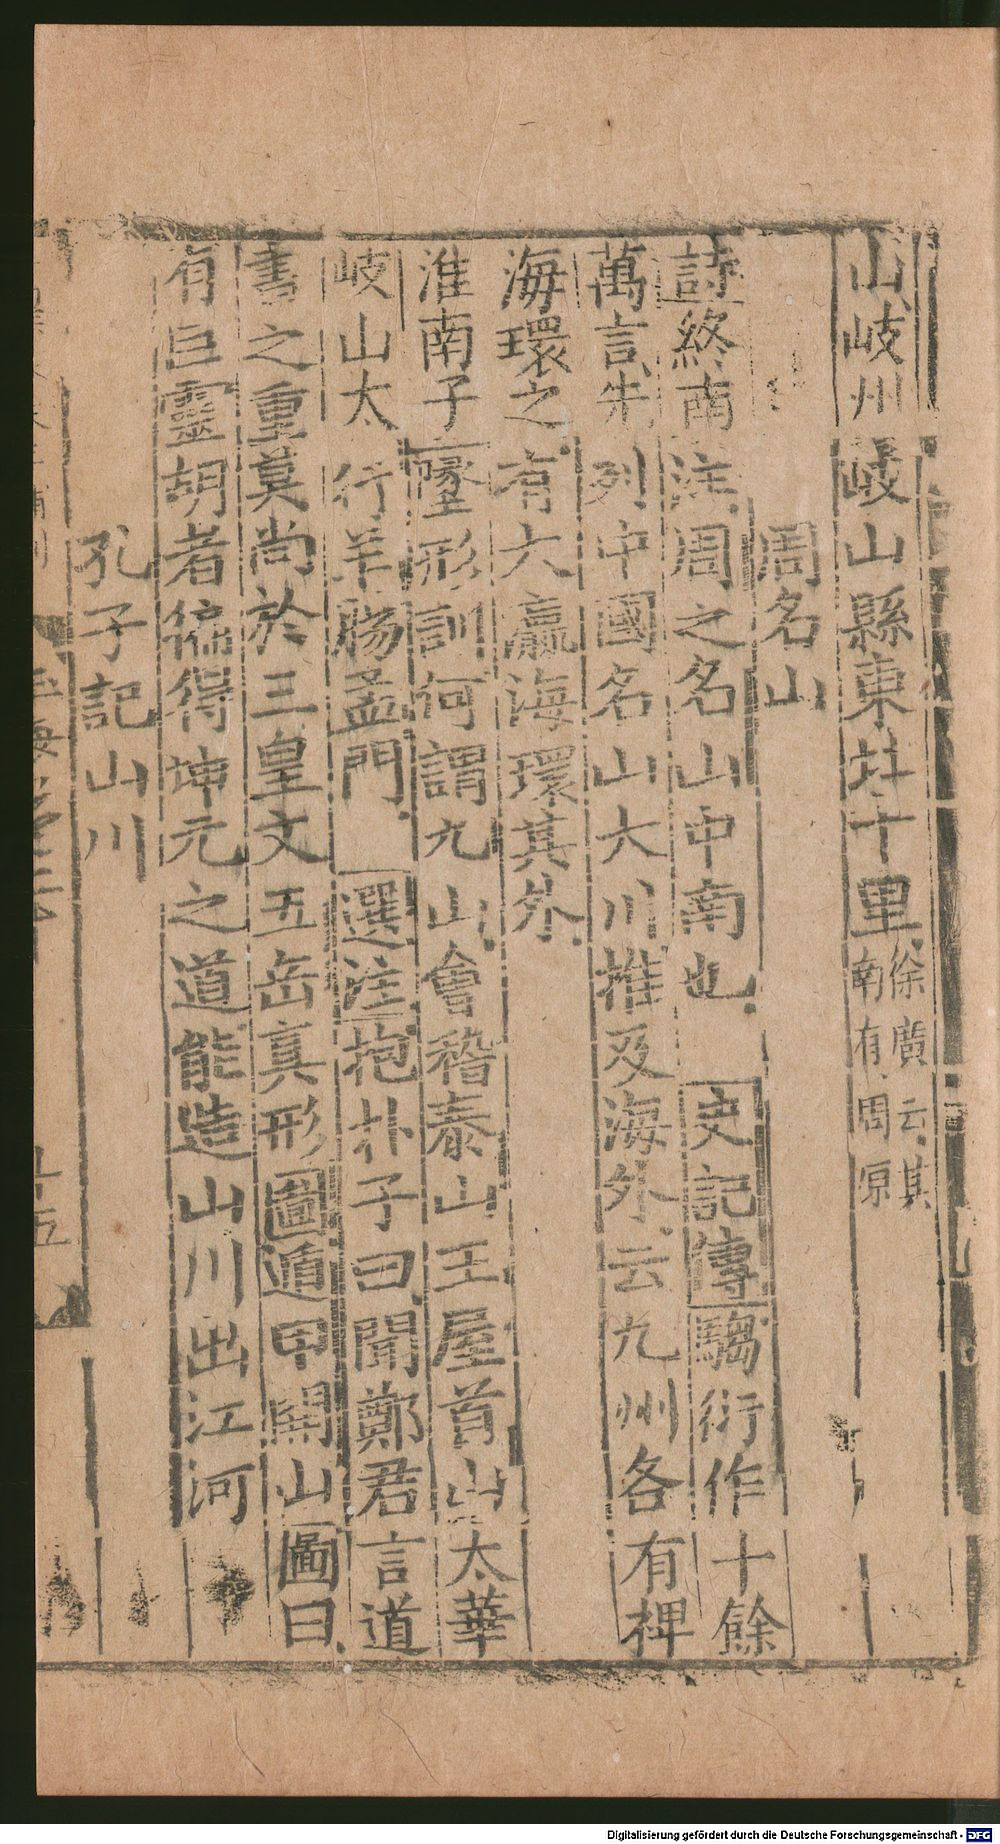 山岐州岐山縣東北十里徐廣云其南有周原
周名山
詩終南注周之名山中南也 史記傳騶衍作十餘
萬言先列中國名山大川推及海外云九州各有裨
海環之有大瀛海環其外
淮南子墬形訓何謂九山會稽泰山王屋首山太華
岐山太行羊腸孟門 選注抱朴子曰聞鄭君言道
書之重莫尚於三皇文五岳真形圖遁甲開山圖曰
有巨靈胡者徧得坤元之道能造山川出江河
孔子記山川
Digitalisierung gefördert durch die Deutsche Forschungsgemeinschaft - DFG